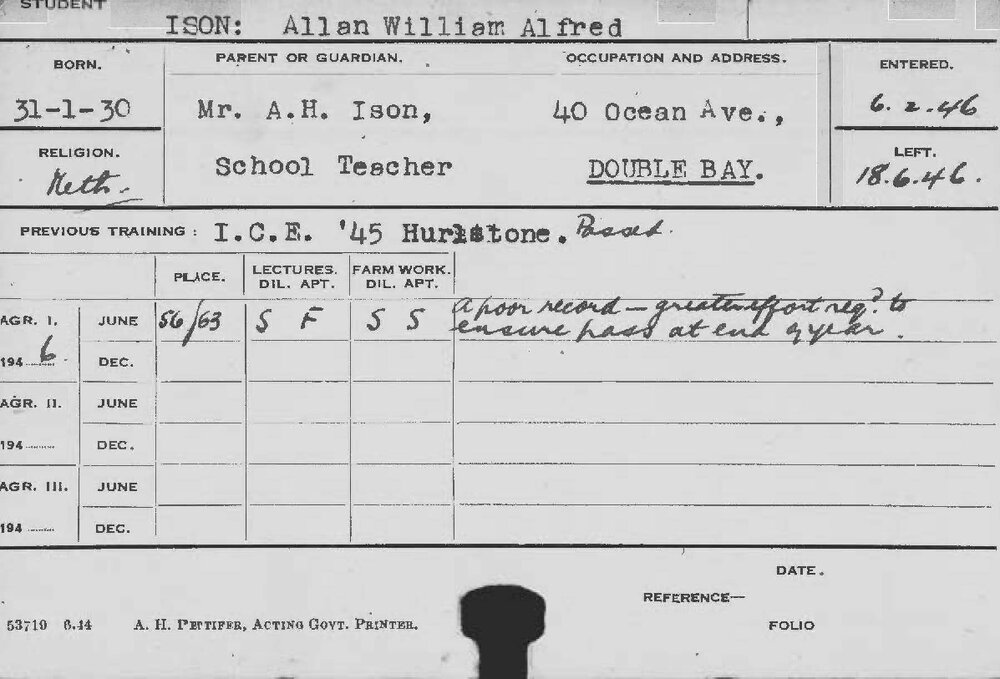 STUDENT
ISON: Allan William Alfred
BORN. PARENT OR GUARDIAN. OCCUPATION AND ADDRESS. ENTERED.
31-1-30 Mr. A.H. Ison, 40 Ocean Ave., 6.2.46
RELIGION. School Teacher DOUBLE BAY. LEFT.
Meth. 18.6.46.
PREVIOUS TRAINING: I.C.E. '45 Hurlstone. Passed.
PLACE. LECTURES. FARM WORK.
DIL. APT. DIL. APT.
AGR. I. JUNE 56/63 S F S S A poor record - greater effort req? to
ensure pass at end of year.
194 6. DEC.
AGR. II. JUNE
194 DEC.
AGR. III. JUNE
194 DEC.
DATE.
REFERENCE—
53719 6.44 A. H. PETTIFER, ACTING GOVT. PRINTER. FOLIO